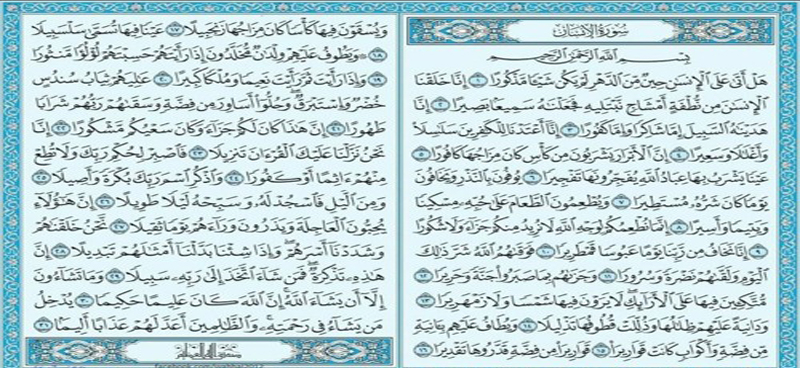 سُورَةُ الإِنسَان
بِسْمِ اللَّهِ الرَّحْمَٰنِ الرَّحِيمِ
هَلْ أَتَىٰ عَلَى الْإِنسَٰنِ حِينٌ مِّنَ الدَّهْرِ لَمْ يَكُن شَيْـًٔا مَّذْكُورًا ۝١ إِنَّا خَلَقْنَا
الْإِنسَٰنَ مِن نُّطْفَةٍ أَمْشَاجٍ نَّبْتَلِيهِ فَجَعَلْنَٰهُ سَمِيعًۢا بَصِيرًا ۝٢ إِنَّا
هَدَيْنَٰهُ السَّبِيلَ إِمَّا شَاكِرًا وَإِمَّا كَفُورًا ۝٣ إِنَّآ أَعْتَدْنَا لِلْكَٰفِرِينَ سَلَٰسِلَا۟
وَأَغْلَٰلًا وَسَعِيرًا ۝٤ إِنَّ الْأَبْرَارَ يَشْرَبُونَ مِن كَأْسٍ كَانَ مِزَاجُهَا كَافُورًا ۝٥
عَيْنًا يَشْرَبُ بِهَا عِبَادُ اللَّهِ يُفَجِّرُونَهَا تَفْجِيرًا ۝٦ يُوفُونَ بِالنَّذْرِ وَيَخَافُونَ
يَوْمًا كَانَ شَرُّهُۥ مُسْتَطِيرًا ۝٧ وَيُطْعِمُونَ الطَّعَامَ عَلَىٰ حُبِّهِۦ مِسْكِينًا
وَيَتِيمًا وَأَسِيرًا ۝٨ إِنَّمَا نُطْعِمُكُمْ لِوَجْهِ اللَّهِ لَا نُرِيدُ مِنكُمْ جَزَآءً وَلَا شُكُورًا
۝٩ إِنَّا نَخَافُ مِن رَّبِّنَا يَوْمًا عَبُوسًا قَمْطَرِيرًا ۝١٠ فَوَقَىٰهُمُ اللَّهُ شَرَّ ذَٰلِكَ
الْيَوْمِ وَلَقَّىٰهُمْ نَضْرَةً وَسُرُورًا ۝١١ وَجَزَىٰهُم بِمَا صَبَرُوا۟ جَنَّةً وَحَرِيرًا ۝١٢
مُّتَّكِـِٔينَ فِيهَا عَلَى الْأَرَآئِكِ ۖ لَا يَرَوْنَ فِيهَا شَمْسًا وَلَا زَمْهَرِيرًا ۝١٣
وَدَانِيَةً عَلَيْهِمْ ظِلَٰلُهَا وَذُلِّلَتْ قُطُوفُهَا تَذْلِيلًا ۝١٤ وَيُطَافُ عَلَيْهِم بِـَٔانِيَةٍ
مِّن فِضَّةٍ وَأَكْوَابٍ كَانَتْ قَوَارِيرَا۠ ۝١٥ قَوَارِيرَا۟ مِن فِضَّةٍ قَدَّرُوهَا تَقْدِيرًا ۝١٦
وَيُسْقَوْنَ فِيهَا كَأْسًا كَانَ مِزَاجُهَا زَنجَبِيلًا ۝١٧ عَيْنًا فِيهَا تُسَمَّىٰ سَلْسَبِيلًا
۝١٨ وَيَطُوفُ عَلَيْهِمْ وِلْدَٰنٌ مُّخَلَّدُونَ إِذَا رَأَيْتَهُمْ حَسِبْتَهُمْ لُؤْلُؤًا مَّنثُورًا
۝١٩ وَإِذَا رَأَيْتَ ثَمَّ رَأَيْتَ نَعِيمًا وَمُلْكًا كَبِيرًا ۝٢٠ عَٰلِيَهُمْ ثِيَابُ سُندُسٍ
خُضْرٌ وَإِسْتَبْرَقٌ ۖ وَحُلُّوٓا۟ أَسَاوِرَ مِن فِضَّةٍ وَسَقَىٰهُمْ رَبُّهُمْ شَرَابًا
طَهُورًا ۝٢١ إِنَّ هَٰذَا كَانَ لَكُمْ جَزَآءً وَكَانَ سَعْيُكُم مَّشْكُورًا ۝٢٢ إِنَّا
نَحْنُ نَزَّلْنَا عَلَيْكَ الْقُرْءَانَ تَنزِيلًا ۝٢٣ فَاصْبِرْ لِحُكْمِ رَبِّكَ وَلَا تُطِعْ
مِنْهُمْ ءَاثِمًا أَوْ كَفُورًا ۝٢٤ وَاذْكُرِ اسْمَ رَبِّكَ بُكْرَةً وَأَصِيلًا ۝٢٥
وَمِنَ الَّيْلِ فَاسْجُدْ لَهُۥ وَسَبِّحْهُ لَيْلًا طَوِيلًا ۝٢٦ إِنَّ هَٰٓؤُلَآءِ
يُحِبُّونَ الْعَاجِلَةَ وَيَذَرُونَ وَرَآءَهُمْ يَوْمًا ثَقِيلًا ۝٢٧ نَّحْنُ خَلَقْنَٰهُمْ
وَشَدَدْنَآ أَسْرَهُمْ ۖ وَإِذَا شِئْنَا بَدَّلْنَآ أَمْثَٰلَهُمْ تَبْدِيلًا ۝٢٨ إِنَّ
هَٰذِهِۦ تَذْكِرَةٌ ۖ فَمَن شَآءَ اتَّخَذَ إِلَىٰ رَبِّهِۦ سَبِيلًا ۝٢٩ وَمَا تَشَآءُونَ
إِلَّآ أَن يَشَآءَ اللَّهُ ۚ إِنَّ اللَّهَ كَانَ عَلِيمًا حَكِيمًا ۝٣٠ يُدْخِلُ
مَن يَشَآءُ فِى رَحْمَتِهِۦ ۚ وَالظَّٰلِمِينَ أَعَدَّ لَهُمْ عَذَابًا أَلِيمًۢا ۝٣١